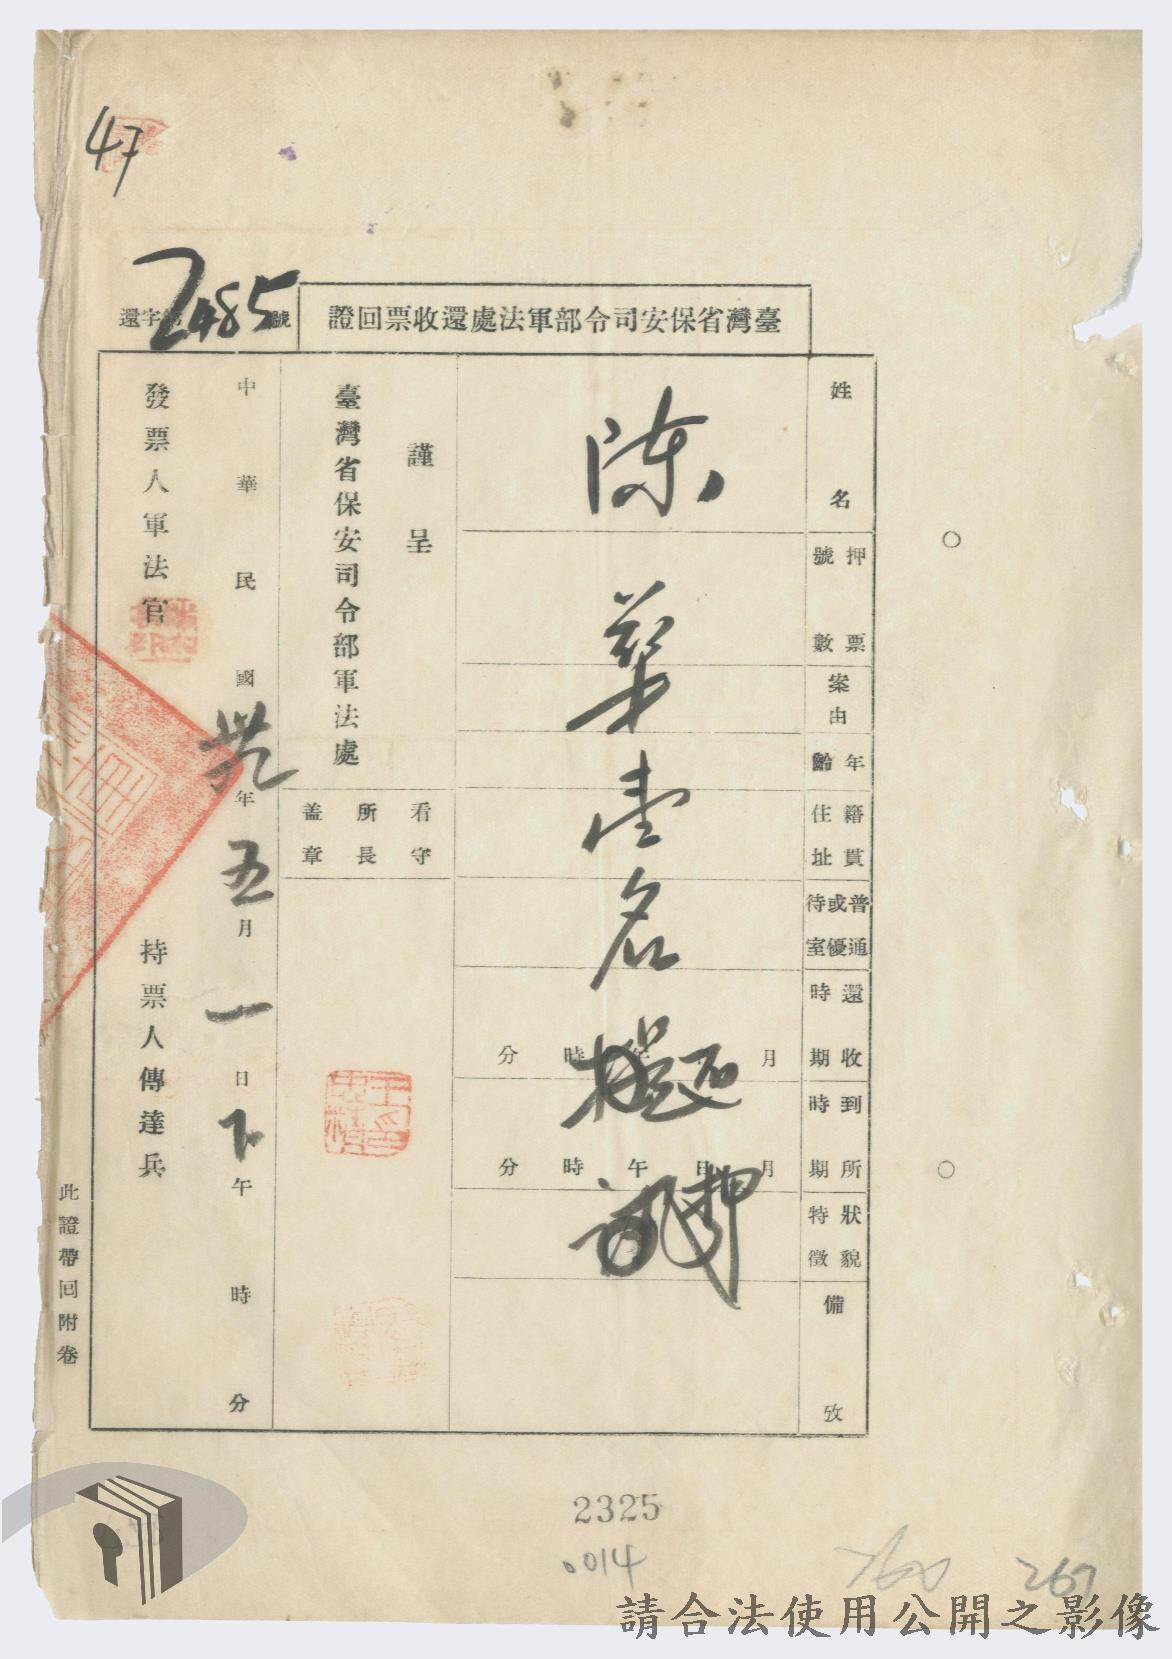 47
臺灣省保安司令部軍法處還收票回證
還字第2485號
姓名
押票號數
案由
年齡
籍貫住址
普通或優待室
還收時期
月 日 午 時 分
到所時期
月 日 午 時 分
狀貌特徵
備攷
陳華壹名
還押
謹呈
臺灣省保安司令部軍法處
看守所長盖章
中華民國卅九年五月一日下午 時 分
發票人軍法官
持票人傳達兵
此證帶回附卷
2325
0014
260
267
請合法使用公開之影像